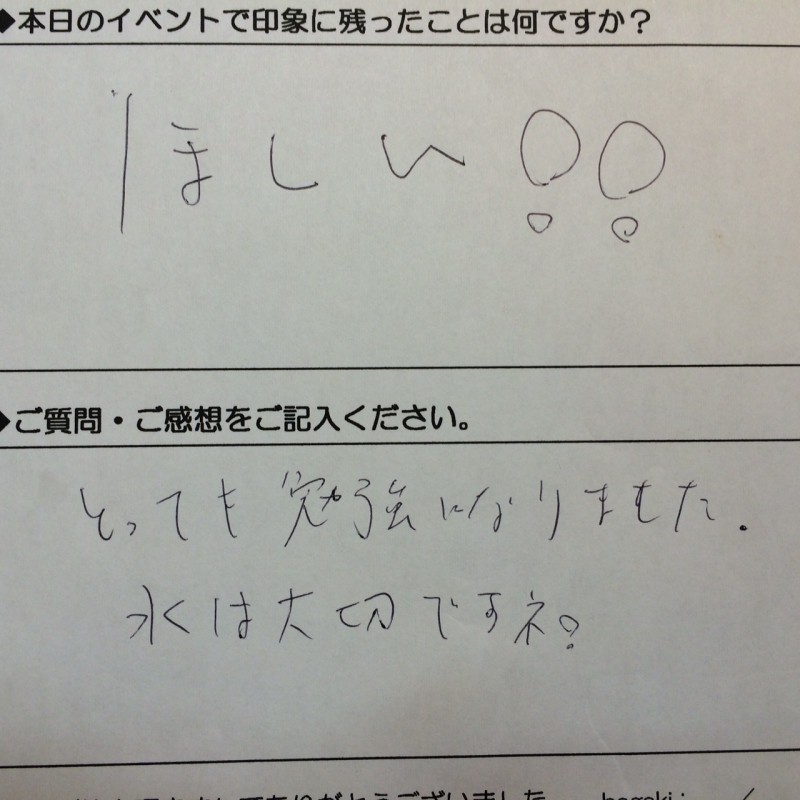 ◆本日のイベントで印象に残ったことは何ですか？
ほしい!!
◆ご質問・ご感想をご記入ください。
とっても勉強になりました.
水は大切ですネ!
ありがとうございました